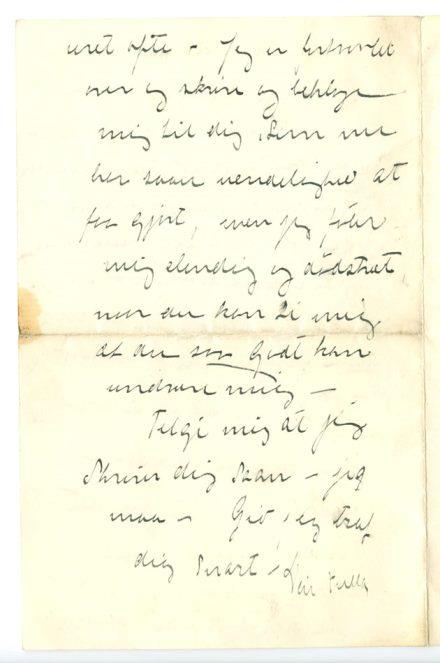 været ofte – Jeg er fortvivlet
over og skrive og beklage
mig til dig, som nu
har saan uendelighed at
faa gjort, men jeg føler
mig elendig og dødstræt
naar du kan si mig
at du saa godt kan
undvære mig –
Tilgi mig at jeg
skriver dig saan – jeg
maa – Gid jeg traf
dig snart! Din